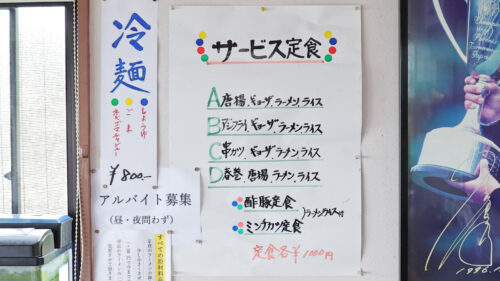 冷麺
しょうゆ
ごま
¥800-
アルバイト募集
(昼・夜問わず)
サービス定食
A 唐揚、ギョーザ、ラーメン、ライス
B アジフライ、ギョーザ、ラーメン、ライス
C 串カツ、ギョーザ、ラーメン、ライス
D 春巻、唐揚、ラーメン、ライス
酢豚定食
ミンチカツ定食
ラーメン、ライス付
定食各¥1000円